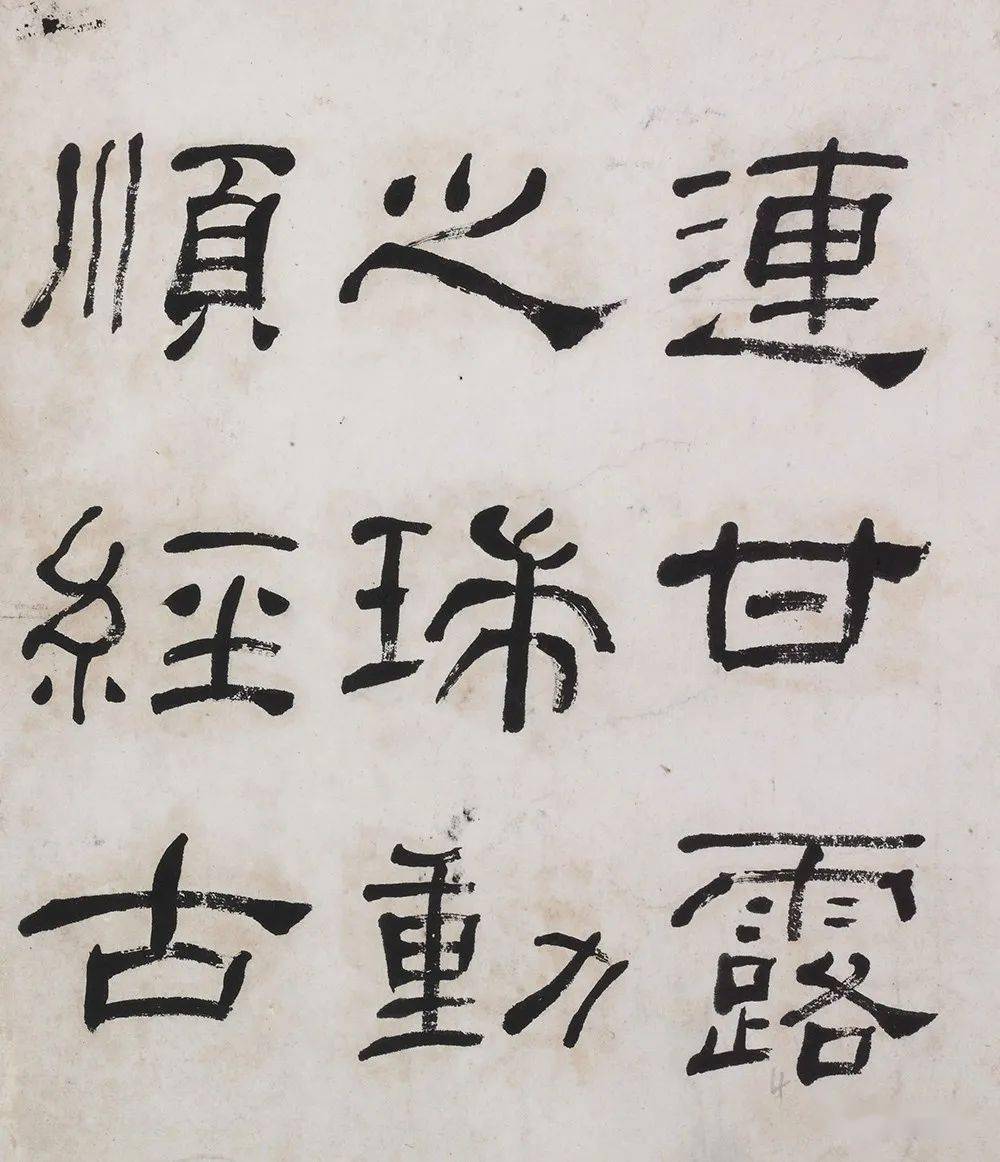 連甘露
之珎動
順經古
4